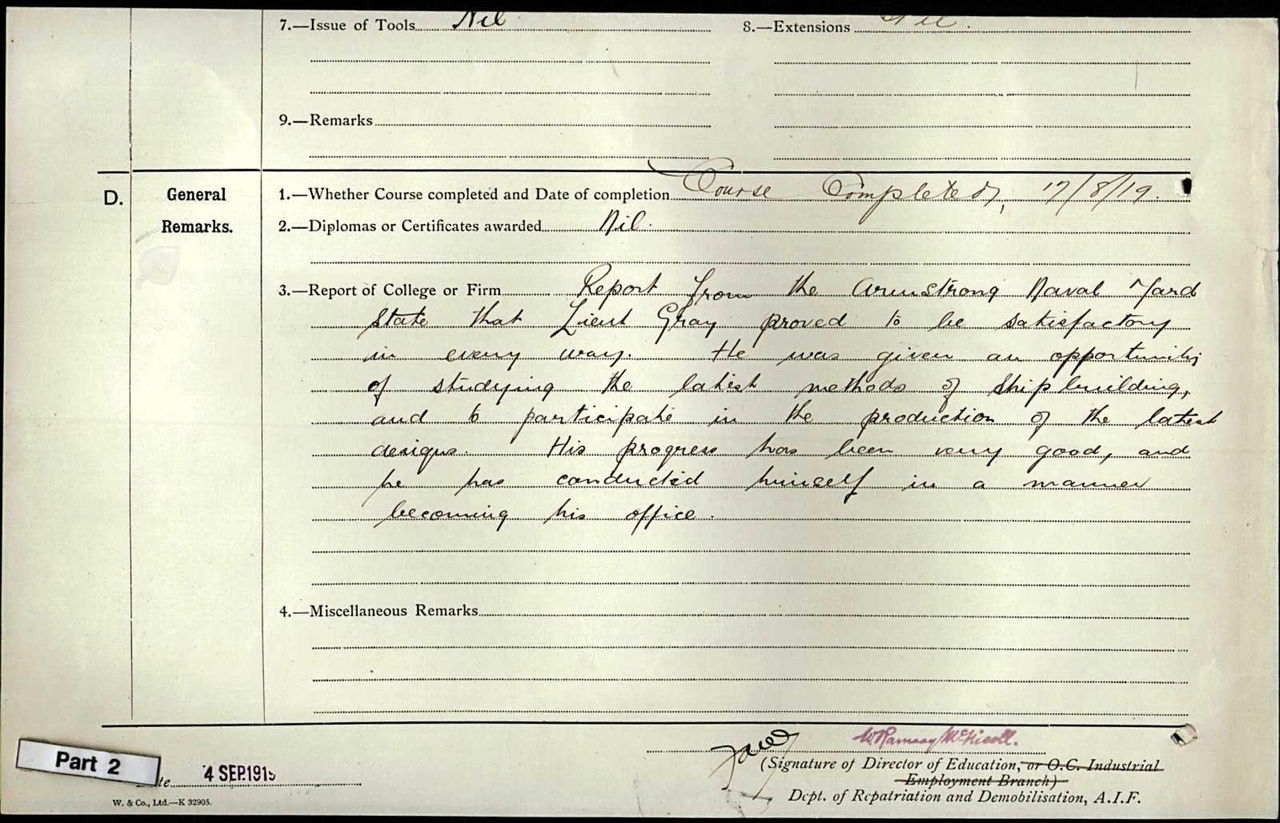 7.—Issue of Tools Nil 8.—Extensions Nil.
9.—Remarks
D. General Remarks.
1.—Whether Course completed and Date of completion Course Completed, 17/8/19.
2.—Diplomas or Certificates awarded Nil.
3.—Report of College or Firm Report from the Armstrong Naval Yard
state that Lieut Gray proved to be satisfactory
in every way. He was given an opportunity
of studying the latest methods of Shipbuilding,
and to participate in the production of the latest
designs. His progress has been very good, and
he has conducted himself in a manner
becoming his office.
4.—Miscellaneous Remarks
W Ramsay McNicoll.
(Signature of Director of Education, or O.C. Industrial
Employment Branch)
Part 2
te 4 SEP. 1919
Dept. of Repatriation and Demobilisation, A.I.F.
W. & Co., Ltd.—K 32905.